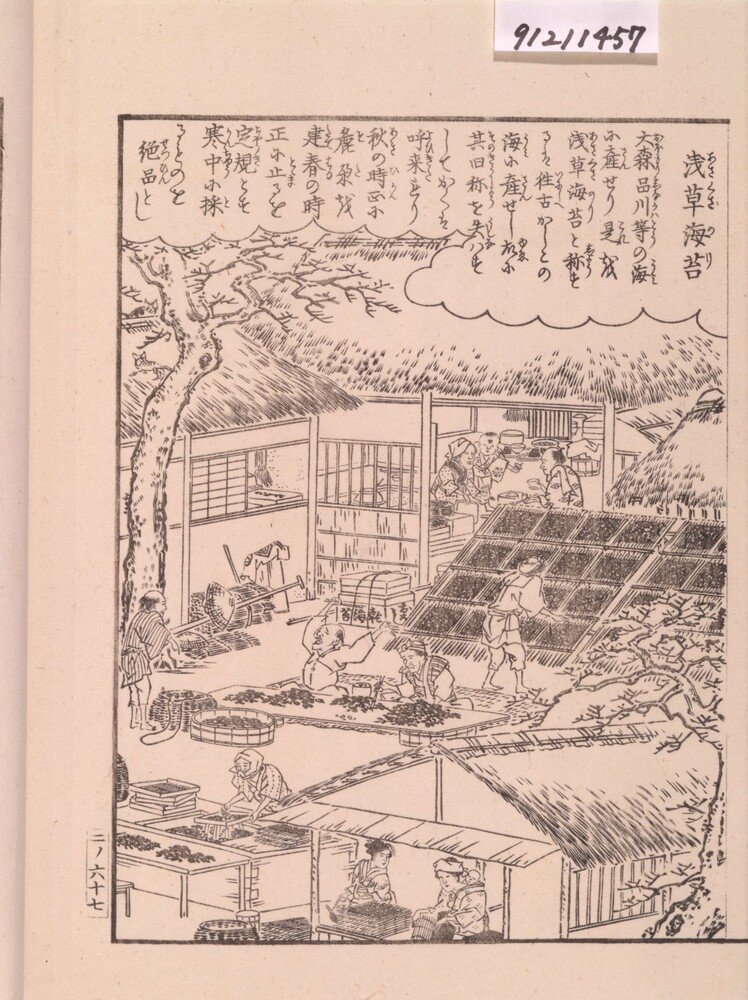 91211457
浅草海苔
あさくさのり
大森品川等の海
に産せり是を
浅草海苔と称す
るは往古かしこの
海に産せし故に
其旧称を失はす
してかくは
呼来れり
秋の時正に
麁朶を
建春の時
正に止るを
定規とす
寒中に採
るものを
絶品とし
乾海苔
二ノ六十七